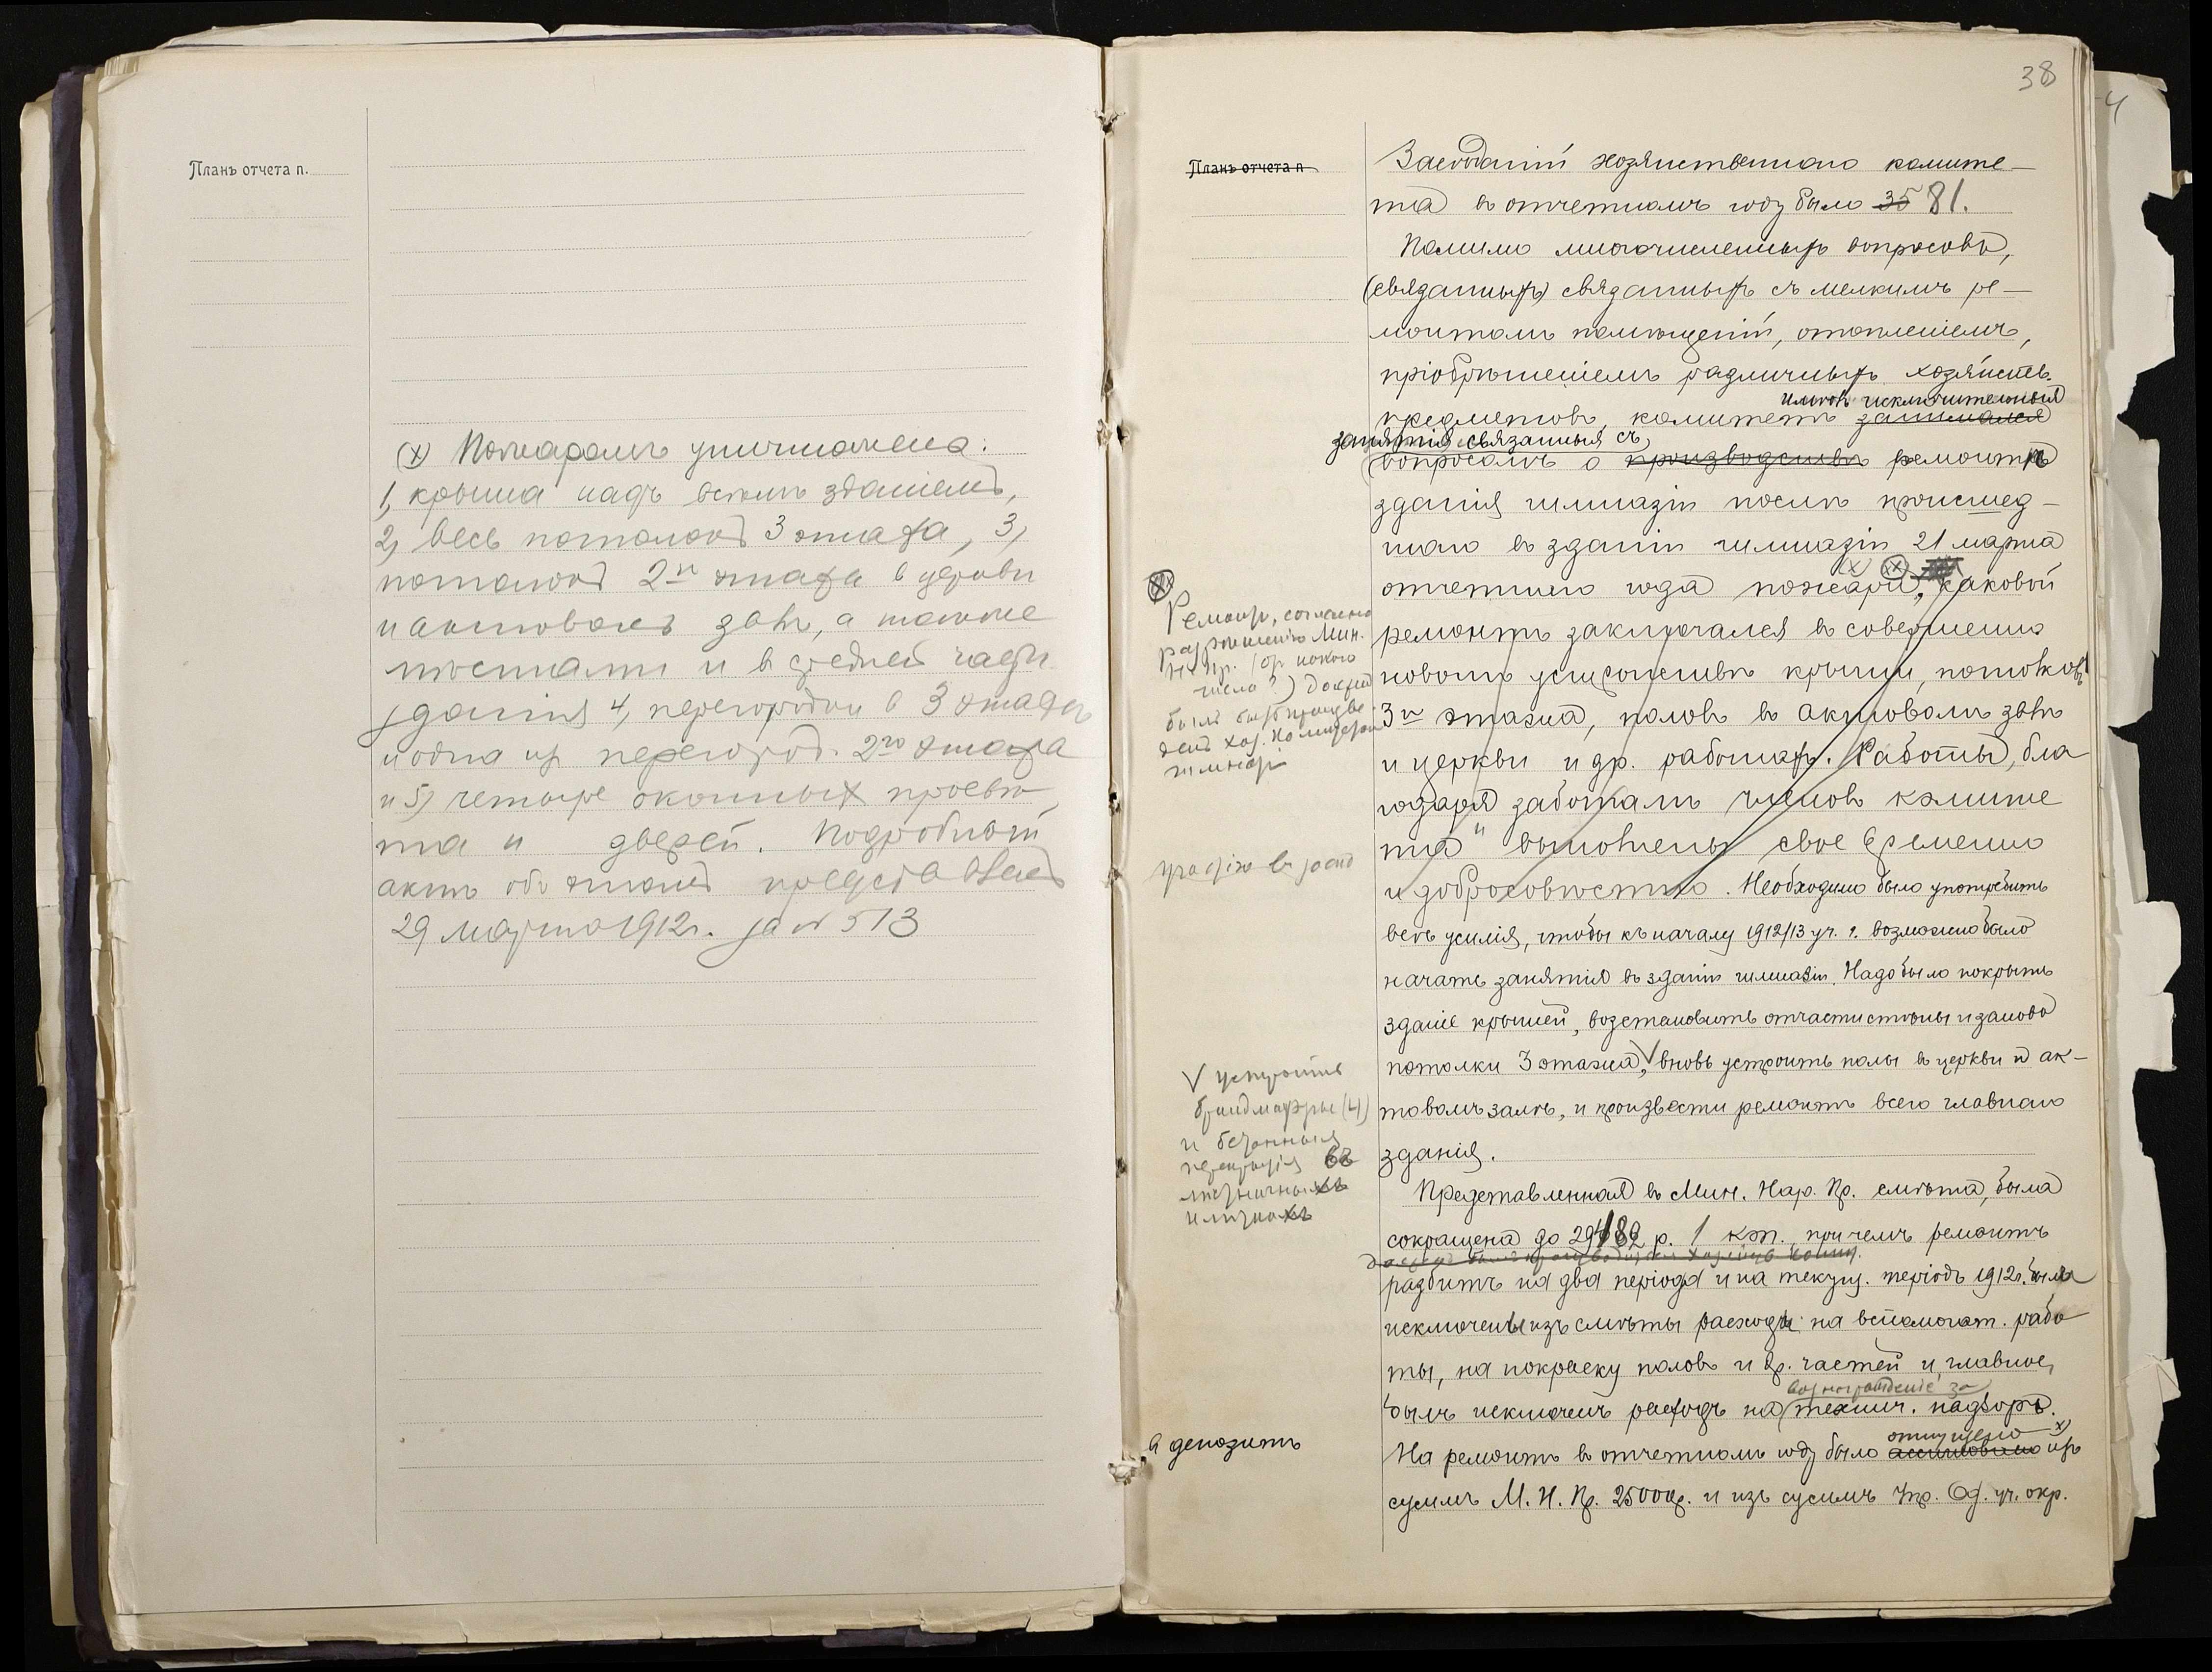 Планъ отчета п.
(х) Пожаромъ уничтожена:
1, крыша надъ всѣмъ зданіемъ,
2, весь потолокъ 3 этажа, 3,
потолокъ 2го этажа в церкви
и актовомъ залѣ, а также
мѣстами и в средней части
зданія 4, перегородки в 3 этажѣ
и одна из перегород. 2го этажа
и 5, четыре оконныхъ просвѣ-
та и дверей. Подробный
актъ объ этомъ представленъ
29 марта 1912 г. за № 513
38
Планъ отчета п
Засѣданій хозяйственнаго комите-
та въ отчетномъ году было 35 81.
Помимо многочисленныхъ вопросовъ,
(связанныхъ) связанныхъ съ мелкимъ ре-
монтомъ помѣщеній, отопленіемъ,
пріобрѣтеніемъ различныхъ хозяйств.
имѣлъ исключительныя
предметовъ, комитетъ занимался
занятія связанныя съ
(вопросомъ о производствѣ ремонта
зданія гимназіи послѣ происшед-
шаго въ зданіи гимназіи 21 марта
(х) (хх)
отчетнаго года пожара, каковой
ремонтъ заключался въ совершенно
новомъ устройствѣ крыши, потолковъ
3го этажа, половъ въ актовомъ залѣ
и церкви и др. работахъ. Работы, бла
годаря заботамъ членовъ комите
та выполнены своевременно
и добросовѣстно. Необходимо было употребить
всѣ усилія, чтобы къ началу 1912/13 уч. г. возможно было
начать занятія въ зданіи гимназіи. Надо было покрыть
зданіе крышей, возстановить отчасти стѣны и заново
потолки 3 этажа, V вновь устроить полы въ церкви и ак-
товомъ залѣ, и произвести ремонтъ всего главнаго
зданія.
Представленная въ Мин. Нар. Пр. смѣта, была
сокращена до 29482 р. 1 коп. при чемъ ремонтъ
разбитъ на два періода и на текущ. періодъ 1912 г. были
исключены изъ смѣты расходы на вспомогат. рабо
ты, на покраску половъ и др. частей и, главное,
вознагражденіе за
былъ исключенъ расходъ на (технич. надзоръ.
отпущено х)
На ремонтъ въ отчетномъ году было ассигновано изъ
суммъ М. Н. Пр. 25000 р. и изъ суммъ Упр. Од. уч. окр.
(хх)
Ремонтъ, согласно
разрѣшенію Мин.
Н. Пр. (от какого
числа?) долженъ
былъ быть произве-
денъ хоз. комитетом
гимназіи
V устроить
брандмауэры (4)
и бетонныя
перекрытія въ
лѣстничныхъ
клѣткахъ
в депозитъ